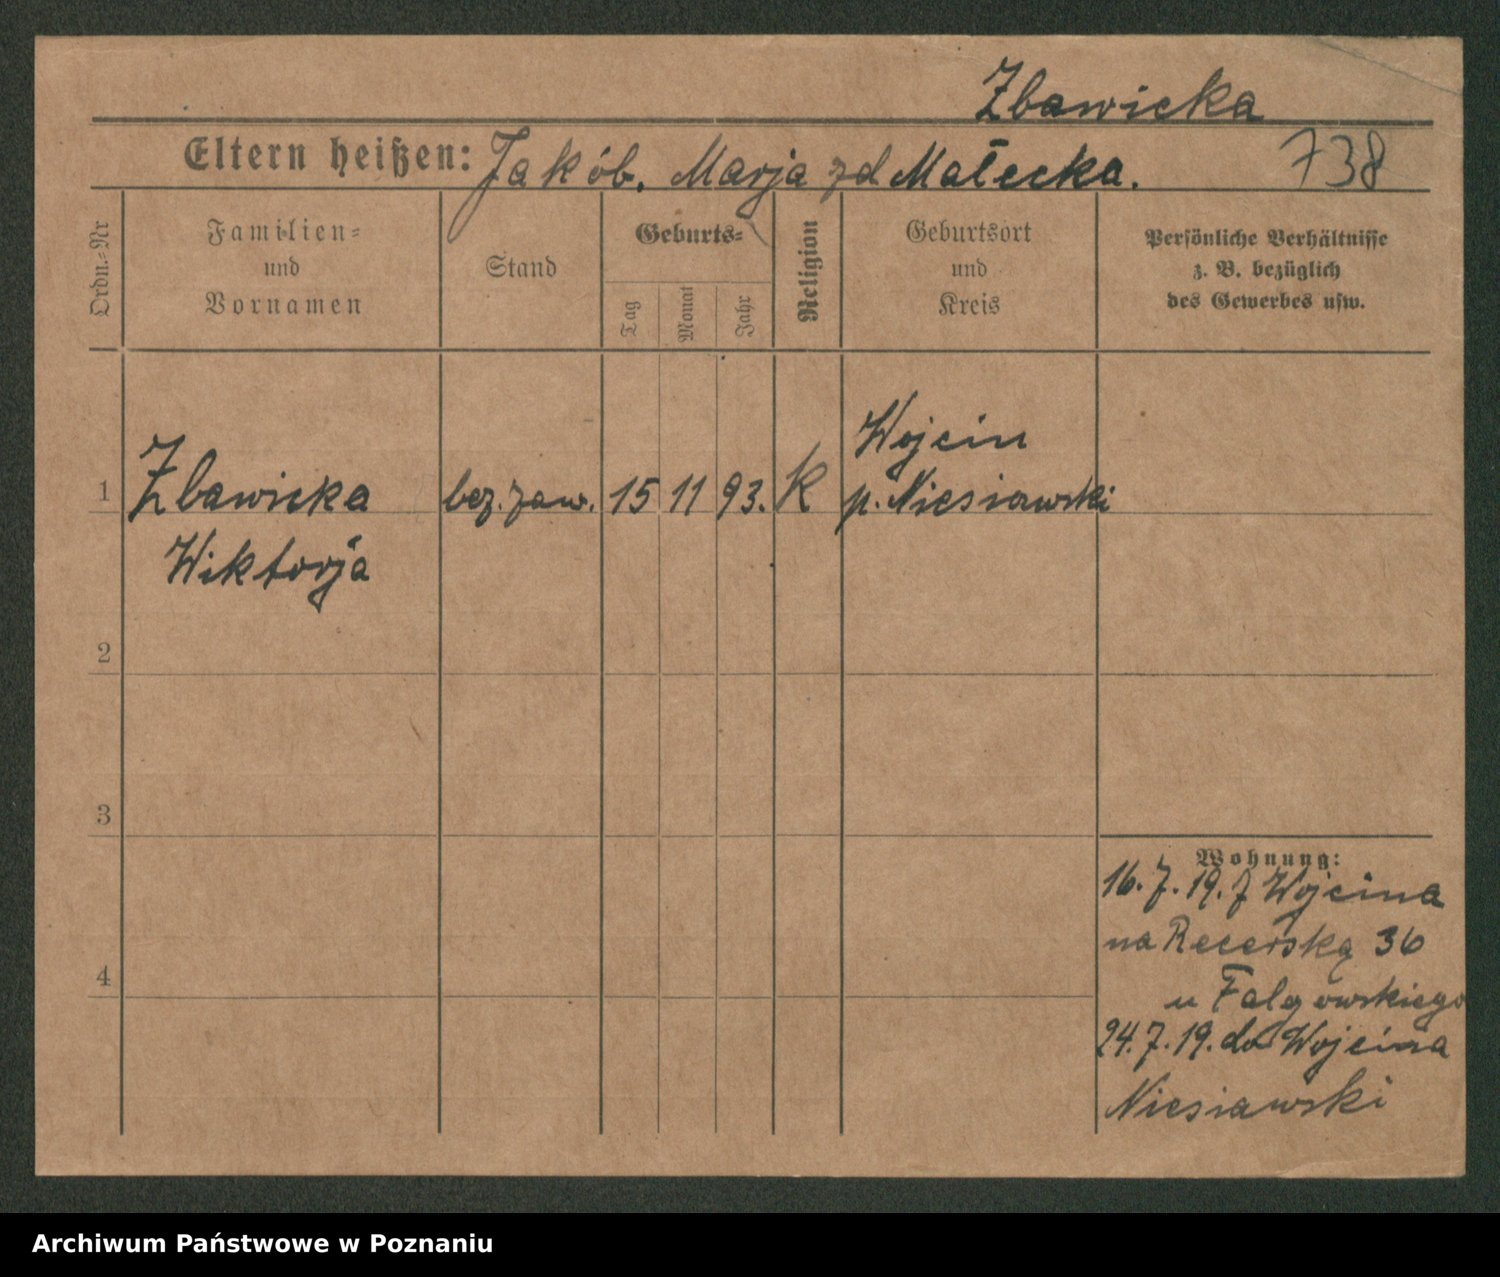 Zbawicka
Eltern heißen: Jakób. Marja zd Małecka.
738
Ordn.-Nr
Familien-
und
Vornamen
Stand
Geburts-
Tag
Monat
Jahr
Religion
Geburtsort
und
Kreis
Persönliche Verhältnisse
z. B. bezüglich
des Gewerbes usw.
1
Zbawicka
Wiktorja
bez. zaw.
15
11
93.
K
Wojcin
p. Niesiawski
2
3
4
Wohnung:
16.7.19. z Wojcina
na 36
u
24.7.19. do Wojcina
Niesiawski
Archiwum Państwowe w Poznaniu